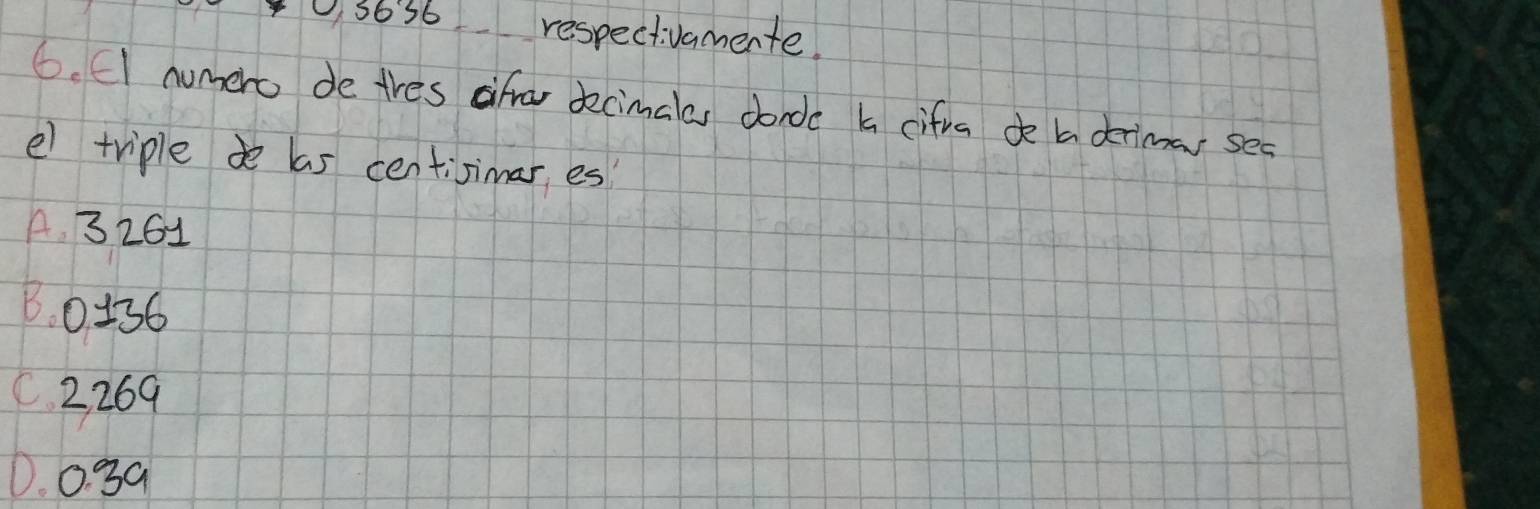 0,3636 respectivamente.
6. El numero de tres cifras decimales donde la cifra de la decimas sea
el triple de las centisimas, es
A. 3,261
B. 0,136
C. 2,269
D. 0.39